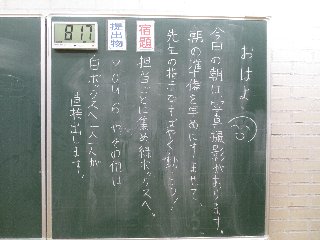 おはよう
今日の朝は、写真撮影があります。
朝の準備を早めにすませて、
先生の指示ですばやく動こう！
宿題
担当ごとに集め緑ボックスへ。
提出物
やその他は
白ボックスへ一人一人が
直接出します。
8:17